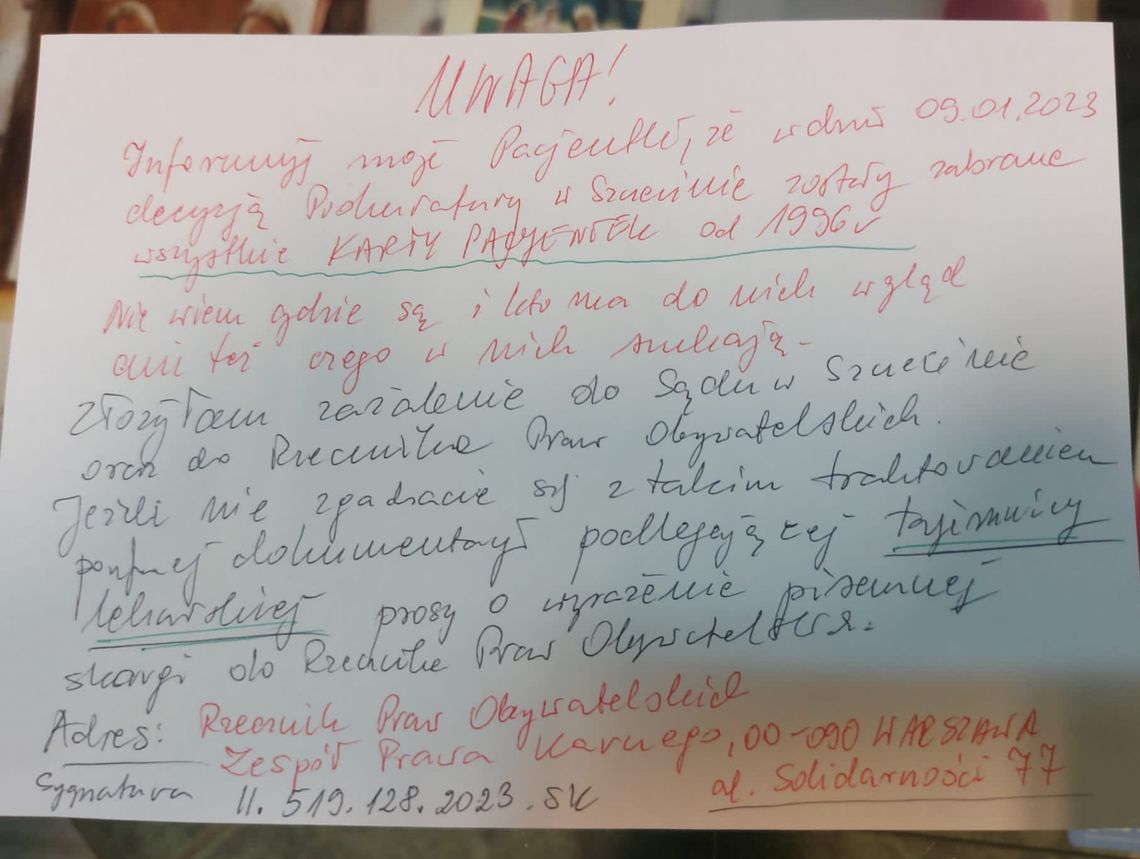 UWAGA!
Informuję moje Pacjentki, że w dniu 09.01.2023
decyzją Prokuratury w Szczecinie zostały zabrane
wszystkie KARTY PACJENTEK od 1996r
Nie wiem gdzie są i kto ma do nich wgląd
ani też czego w nich szukają -
Złożyłam zażalenie do Sądu w Szczecinie
oraz do Rzecznika Praw Obywatelskich.
Jeżeli nie zgadzacie się z takim traktowaniem
poufnej dokumentacji podlegającej tajemnicy
lekarskiej proszę o wyrażenie pisemnej
skargi do Rzecznika Praw Obywatelskich.
Adres: Rzecznik Praw Obywatelskich
Zespół Prawa Karnego, 00-090 WARSZAWA
al. Solidarności 77
Sygnatura II. 519. 128. 2023. SK